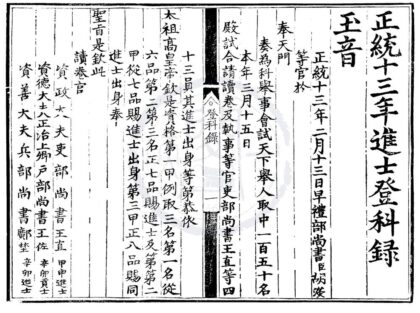 正統十三年進士登科錄
玉音
正統十三年二月十三日早禮部尚書臣胡濙
等官於
奉天門
奏為科舉事會試天下舉人取中一百五十名
本年三月十五日
殿試合請讀卷及執事等官吏部尚書王直等四
登科錄
十三員其進士出身等第恭依
太祖高皇帝欽定資格第一甲例取三名第一名從
六品第二第三名正七品賜進士及第第二
甲從七品賜進士出身第三甲正八品賜同
進士出身奉
聖旨是欽此
讀卷官
資政大夫吏部尚書王直 甲申進士
資德大夫正治上卿戶部尚書王佐 辛卯貢士
資善大夫兵部尚書鄺埜 辛卯進士